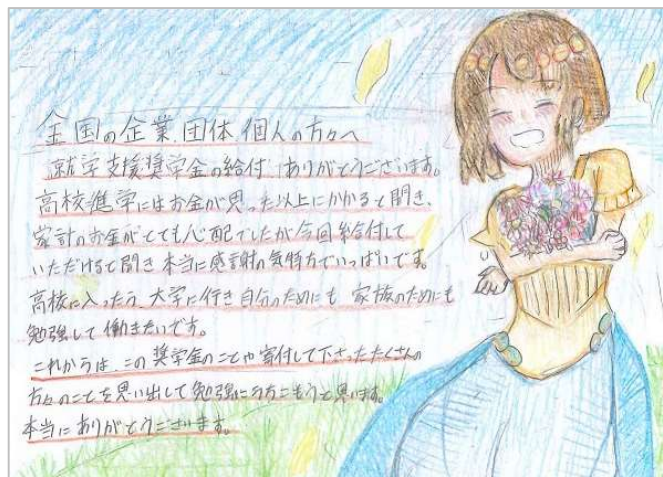 全国の企業、団体、個人の方々へ
就学支援奨学金の給付、ありがとうございます。
高校進学にはお金が思った以上にかかると聞き、
家計のお金がとても心配でしたが今回給付して
いただけると聞き本当に感謝の気持方でいっぱいです。
高校に入ったら、大学に行き自分のためにも、家族のためにも
勉強して働きたいです。
これからは、この奨学金のことや寄付して下さったたくさんの
方々のことを思い出して勉強にうちこもうと思います。
本当にありがとうございます。